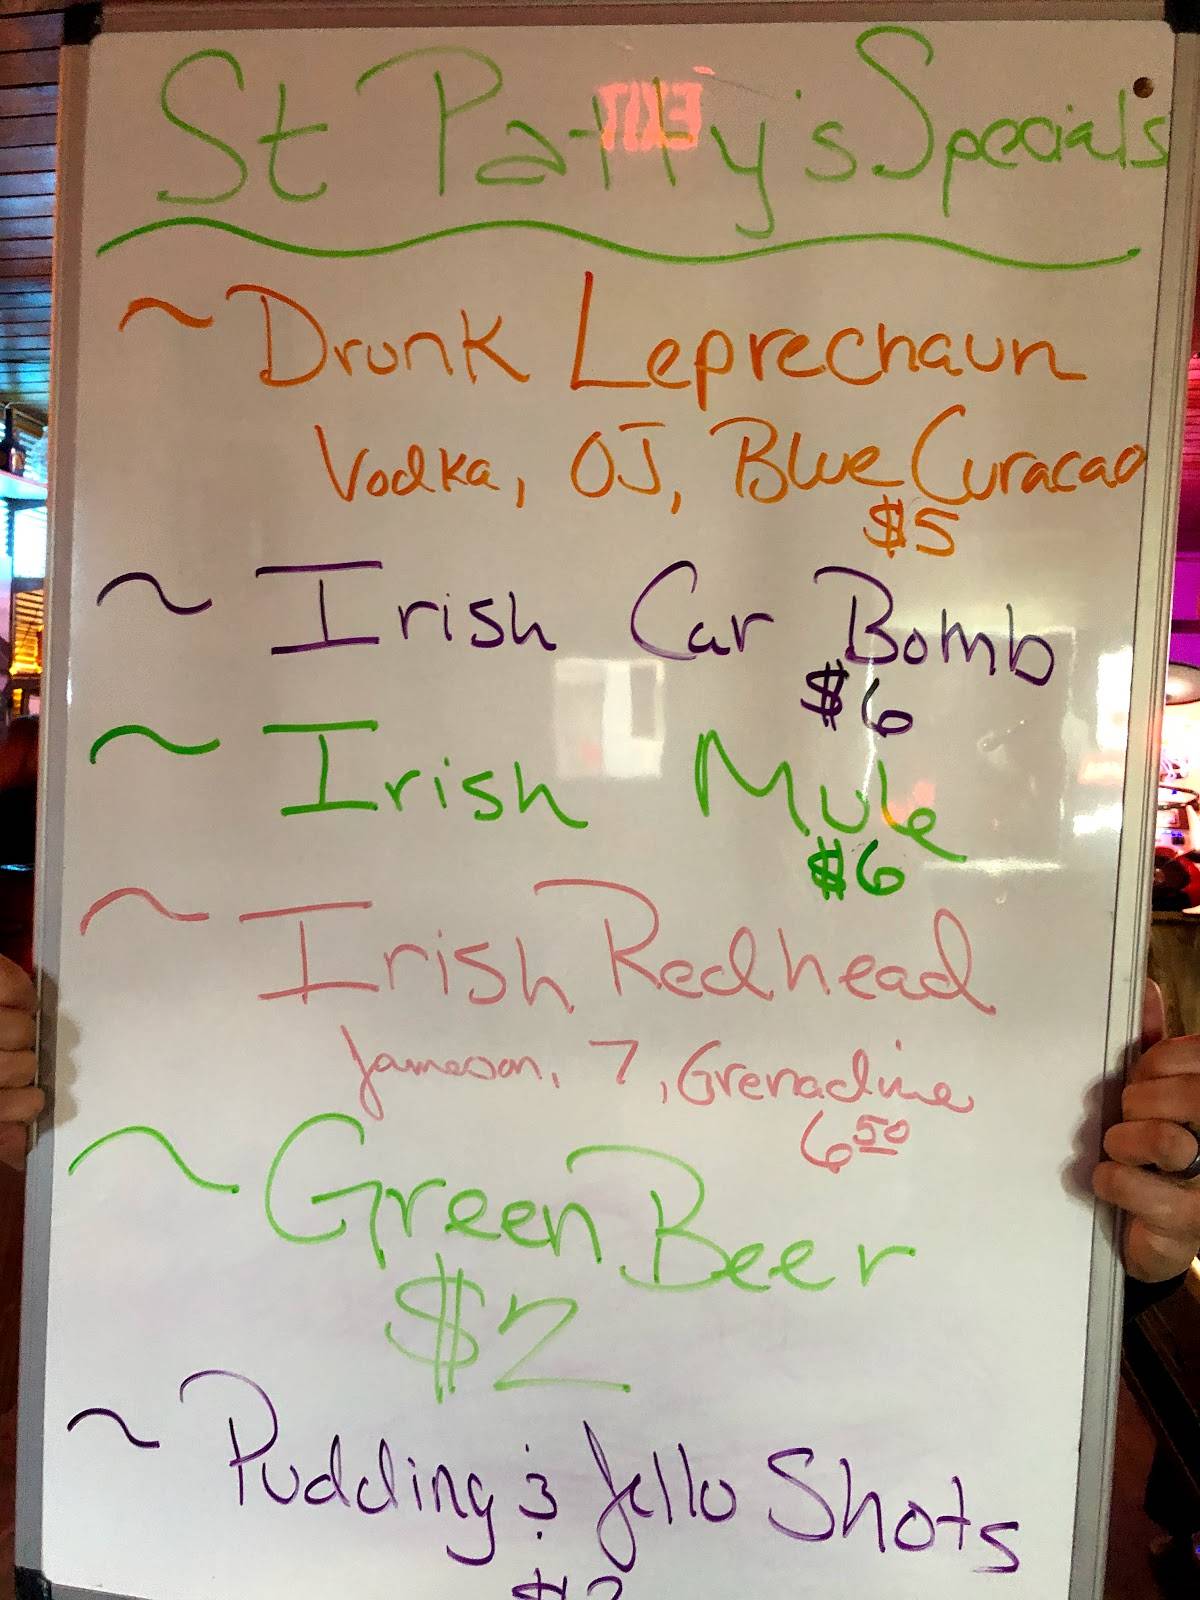 St Patty's Specials
~ Drunk Leprechaun
Vodka, OJ, Blue Curacao
$5
~ Irish Car Bomb
$6
~ Irish Mule
$6
~ Irish Redhead
Jameson, 7, Grenadine
6 50
~ Green Beer
$2
~ Pudding & Jello Shots
EXIT